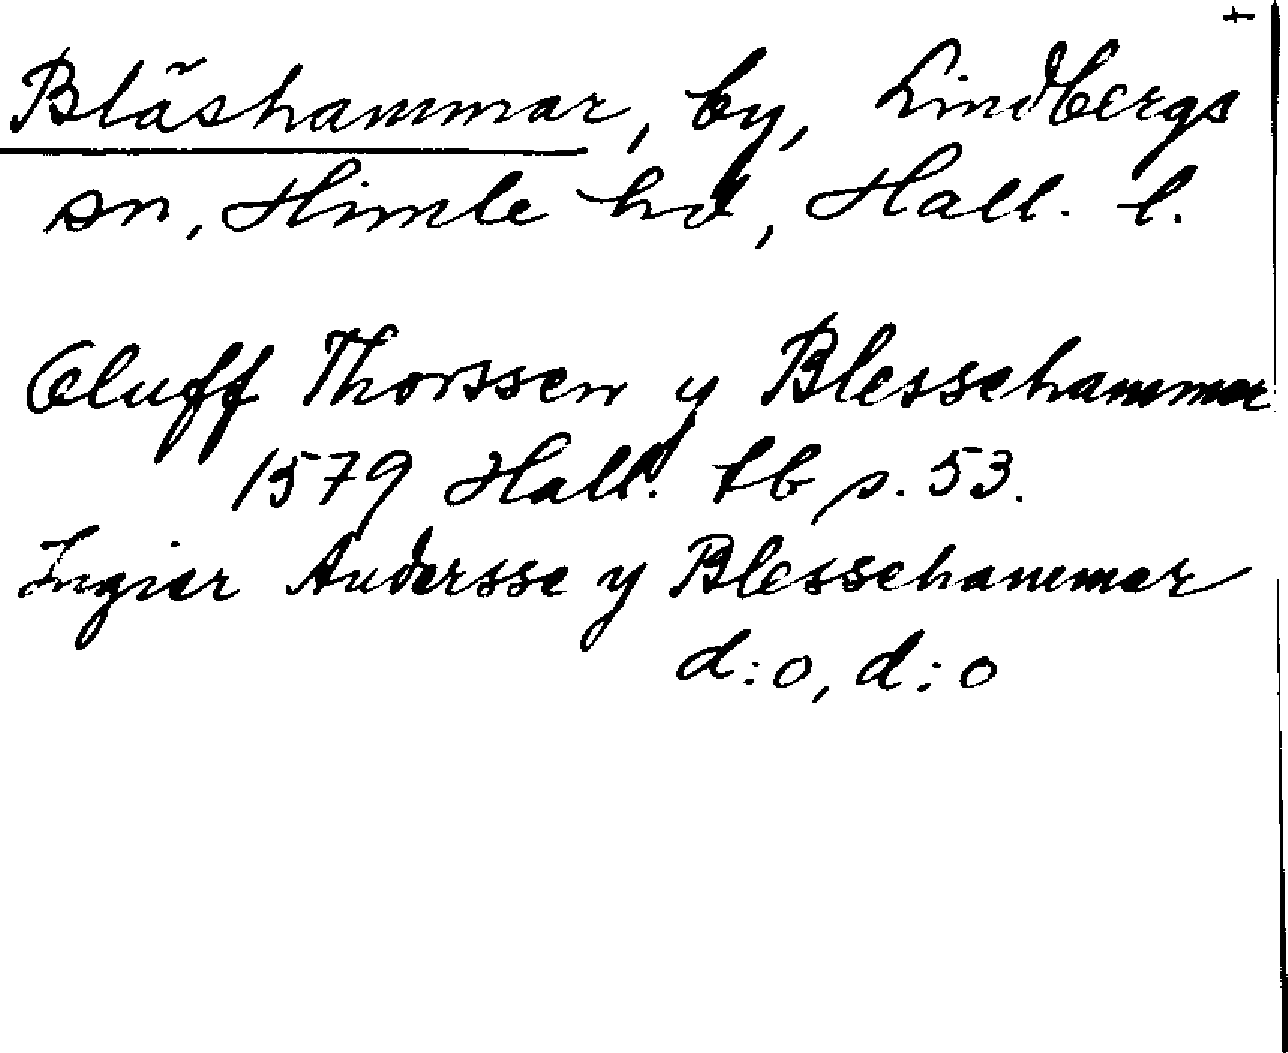 Bläshammar, by, Lindbergs
sn, Himle hd, Hall. l.
Oluff Thorssen y Blessehammer
1579 Hall. tb p. 53.
Ingier Andersse y Blessehammer
d:o, d:o